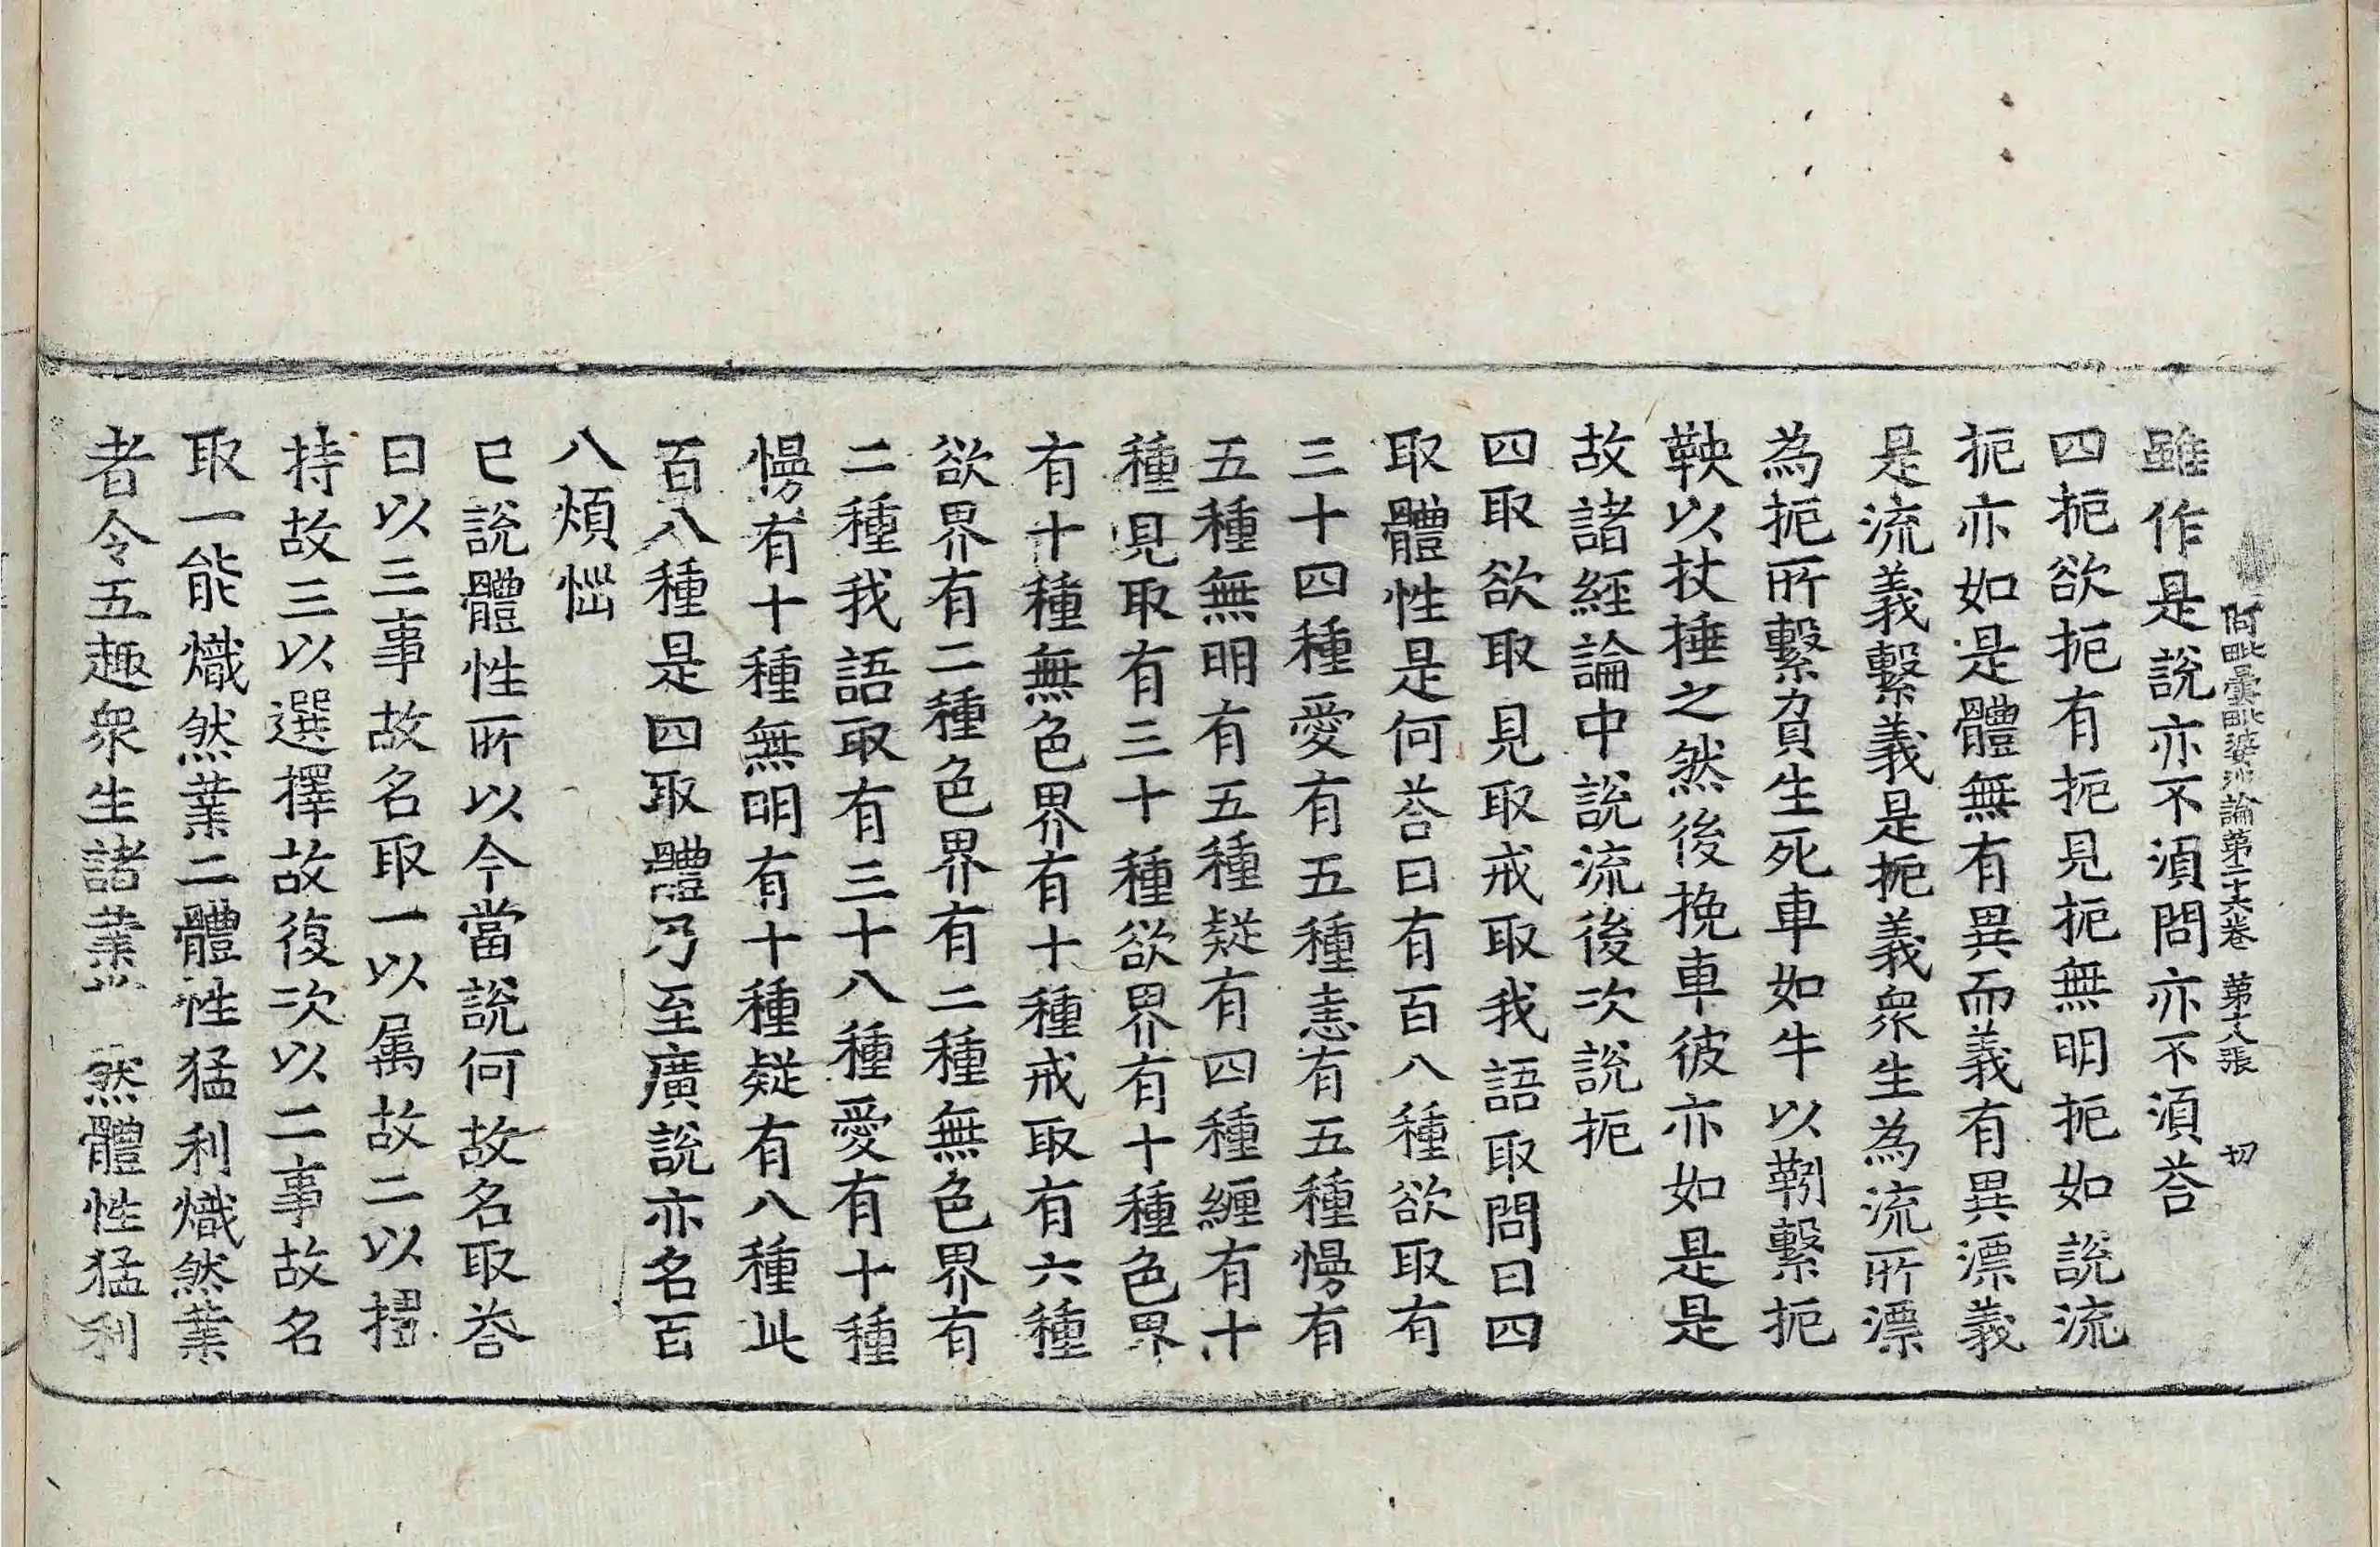 阿毗曇毗婆沙論第二十六卷 第十八張 切
雖作是說亦不湏問亦不湏荅
四扼欲扼有扼見扼無明扼如說流
扼亦如是體無有異而義有異漂義
是流義繫義是扼義衆生為流所漂
為扼所繫負生死車如牛以靷繫扼
鞅以杖捶之然後挽車彼亦如是是
故諸經論中說流後次說扼
四取欲取見取戒取我語取問曰四
取體性是何荅曰有百八種欲取有
三十四種愛有五種恚有五種慢有
五種無明有五種疑有四種纏有十
種見取有三十種欲界有十種色界
有十種無色界有十種戒取有六種
欲界有二種色界有二種無色界有
二種我語取有三十八種愛有十種
慢有十種無明有十種疑有八種此
百八種是四取體乃至廣說亦名百
八煩惱
已說體性所以今當說何故名取荅
曰以三事故名取一以属故二以
持故三以選擇故復次以二事故名
取一能熾然業二體性猛利熾然業
者令五趣衆生諸業 然體性猛利